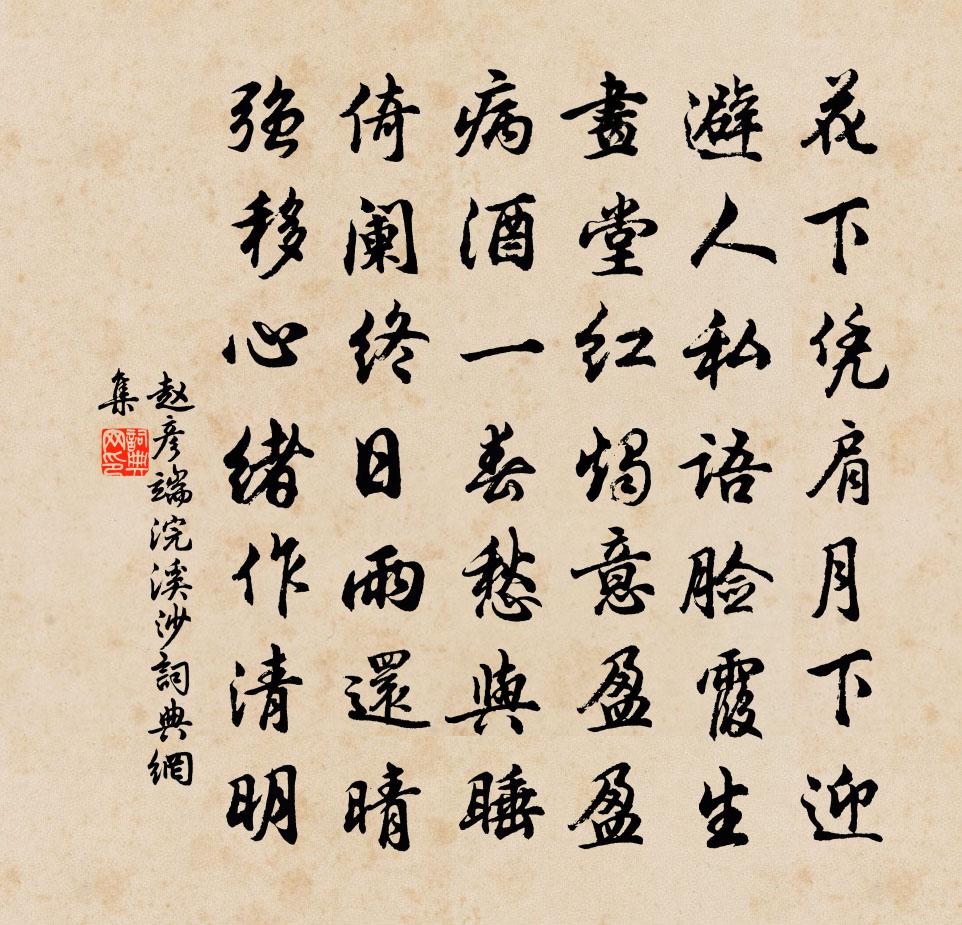 花下凭肩月下迎
避人私语脸霞生
畫堂红燭意盈盈
病酒一春愁與睡
倚阑终日雨還晴
强移心绪作清明
赵彦端浣溪沙詞典網
集
詞典
网印